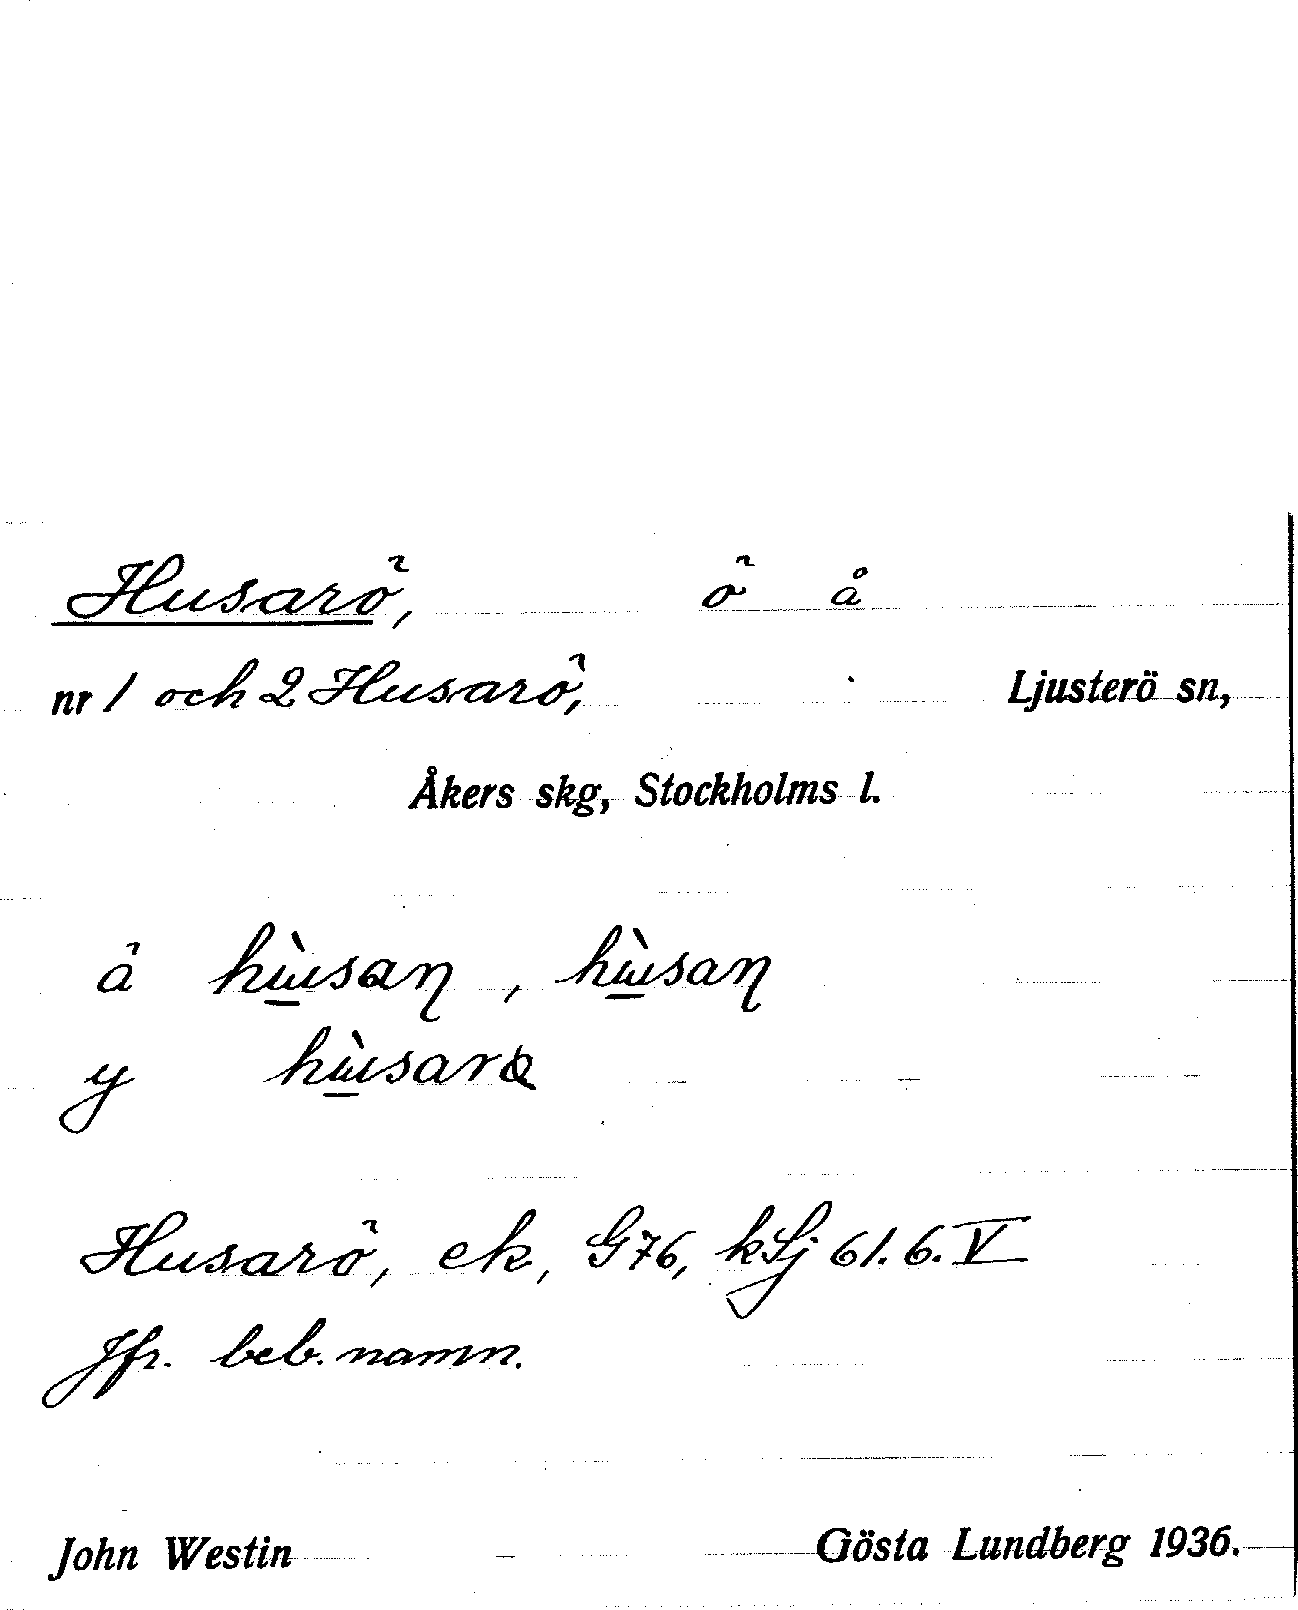 Husarö, ö å
nr 1 och 2 Husarö, Ljusterö sn,
Åkers skg, Stockholms l.
å
y
Husarö, ek, G76, kLj 61.6.V
Jfr. beb. namn.
John Westin Gösta Lundberg 1936.